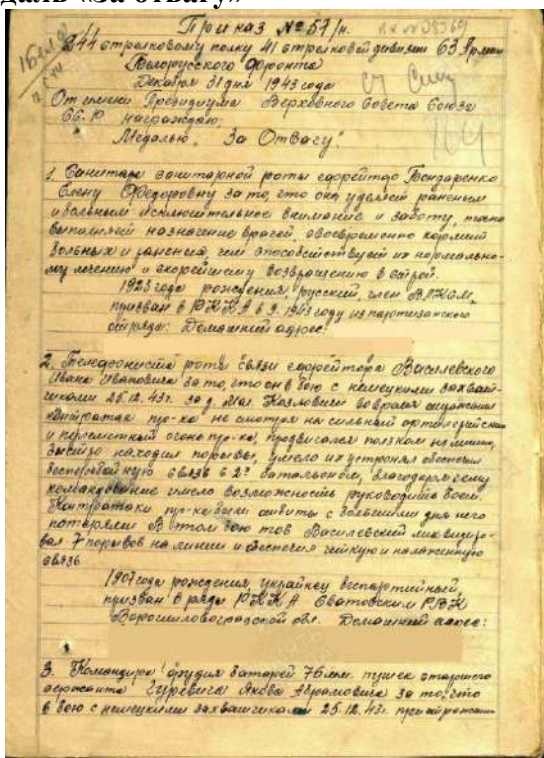 даль «За отвагу»
Приказ № 57/н.
244 стрелковому полку 41 стрелковой дивизии 63 Армии
Белорусского фронта
Декабря 31 дня 1943 года
От имени Президиума Верховного Совета Союза
ССР награждаю:
Медалью „За Отвагу“:
1. Санитара санитарной роты ефрейтора Бондаренко
Елену Федоровну за то, что она уделяет раненым
и больным исключительное внимание и заботу, точно
выполняет назначение врачей, своевременно кормит
больных и раненых, чем способствует их нормально-
му лечению и скорейшему возвращению в строй.
1923 года рождения, русский, член ВЛКСМ,
призван в РККА в 9.1943 году из партизанского
отряда. Домашний адрес:
2. Телефониста роты связи ефрейтора Василевского
Ивана Ивановича за то, что он в бою с немецкими захват-
чиками 25.12.43г. за д. Козловичи во время отражения
контратак пр-ка не смотря на сильный артиллерийский
и пулеметный огонь пр-ка, продвигался ползком на линии,
быстро находил порывы, умело их устранял обеспечил
бесперебойную связь с 2м батальоном, благодаря чему
командование имело возможность руководить боем.
Контратаки пр-ка были отбиты с большими для него
потерями. В этом бою тов. Василевский ликвидиро-
вал 7 порывов на линии и обеспечил четкую и налаженную
связь
1907 года рождения, украинец, беспартийный,
призван в ряды РККА Сватовским РВК
Ворошиловоградской обл. Домашний адрес:
3. Командира орудия батареи 76 мм. пушек старшего
сержанта Гуревича Якова Абрамовича за то, что
в бою с немецкими захватчиками 25.12.43г. при отражении